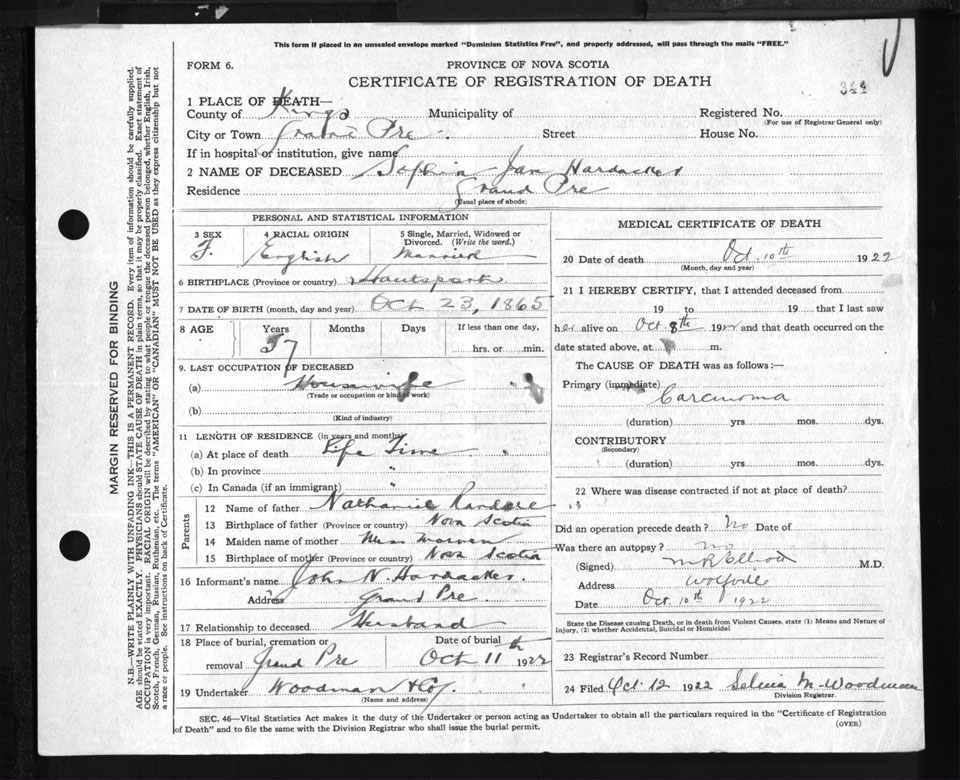 This form if placed in an unsealed envelope marked "Dominion Statistics Free", and properly addressed, will pass through the mails "FREE."
FORM 6.
PROVINCE OF NOVA SCOTIA
CERTIFICATE OF REGISTRATION OF DEATH
344
1 PLACE OF DEATH—
County of Kings Municipality of Registered No.
(For use of Registrar General only)
City or Town Grand Pre Street House No.
If in hospital or institution, give name
2 NAME OF DECEASED Sophia Jan Hardacker
Residence Grand Pre
(Usual place of abode)
PERSONAL AND STATISTICAL INFORMATION
3 SEX 4 RACIAL ORIGIN 5 Single, Married, Widowed or Divorced. (Write the word.)
F. English Married
6 BIRTHPLACE (Province or country) Hantsport
7 DATE OF BIRTH (month, day and year) Oct 23, 1865
8 AGE Years Months Days If less than one day,
57 hrs. or min.
9. LAST OCCUPATION OF DECEASED
(a) Housewife
(Trade or occupation or kind of work)
(b)
(Kind of industry)
11 LENGTH OF RESIDENCE (in years and months)
(a) At place of death Life Time
(b) In province "
(c) In Canada (if an immigrant) "
Parents
12 Name of father Nathaniel
13 Birthplace of father (Province or country) Nova Scotia
14 Maiden name of mother Miss
15 Birthplace of mother (Province or country) Nova Scotia
16 Informant's name John N. Hardacker.
Address Grand Pre
17 Relationship to deceased Husband
18 Place of burial, cremation or removal Grand Pre Date of burial Oct 11th 1922
19 Undertaker Woodman & Co.
(Name and address)
MEDICAL CERTIFICATE OF DEATH
20 Date of death Oct. 10th 1922
(Month, day and year)
21 I HEREBY CERTIFY, that I attended deceased from
19 to 19 that I last saw
her alive on Oct 8th 1922 and that death occurred on the
date stated above, at m.
The CAUSE OF DEATH was as follows:—
Primary (immediate) Carcinoma
(duration) yrs mos. dys.
CONTRIBUTORY
(Secondary)
(duration) yrs mos. dys.
22 Where was disease contracted if not at place of death?
Did an operation precede death? No Date of
Was there an autppsy? no
(Signed) M R Elliott M.D.
Address Wolfville
Date Oct. 10th 1922
State the Disease causing Death, or in death from Violent Causes, state (1) Means and Nature of
injury, (2) whether Accidental, Suicidal or Homicidal
23 Registrar's Record Number
24 Filed Oct 12 1922 Selina M. Woodman
Division Registrar.
SEC. 46—Vital Statistics Act makes it the duty of the Undertaker or person acting as Undertaker to obtain all the particulars required in the "Certificate of Registration
of Death" and to file the same with the Division Registrar who shall issue the burial permit.
(OVER)
MARGIN RESERVED FOR BINDING
N.B.—WRITE PLAINLY WITH UNFADING INK—THIS IS A PERMANENT RECORD. Every item of information should be carefully supplied.
AGE should be stated EXACTLY. PHYSICIANS should STATE CAUSE OF DEATH in plain terms, so that it may be properly classified. Exact statement of
OCCUPATION is very important. RACIAL ORIGIN will be described by stating to what people or tongue the deceased person belonged, whether English, Irish,
Scotch, French, German, Russian, Ruthenian, etc. The terms "AMERICAN" OR "CANADIAN" MUST NOT BE USED as they express citizenship but not
a race or people. See instructions on back of Certificate.